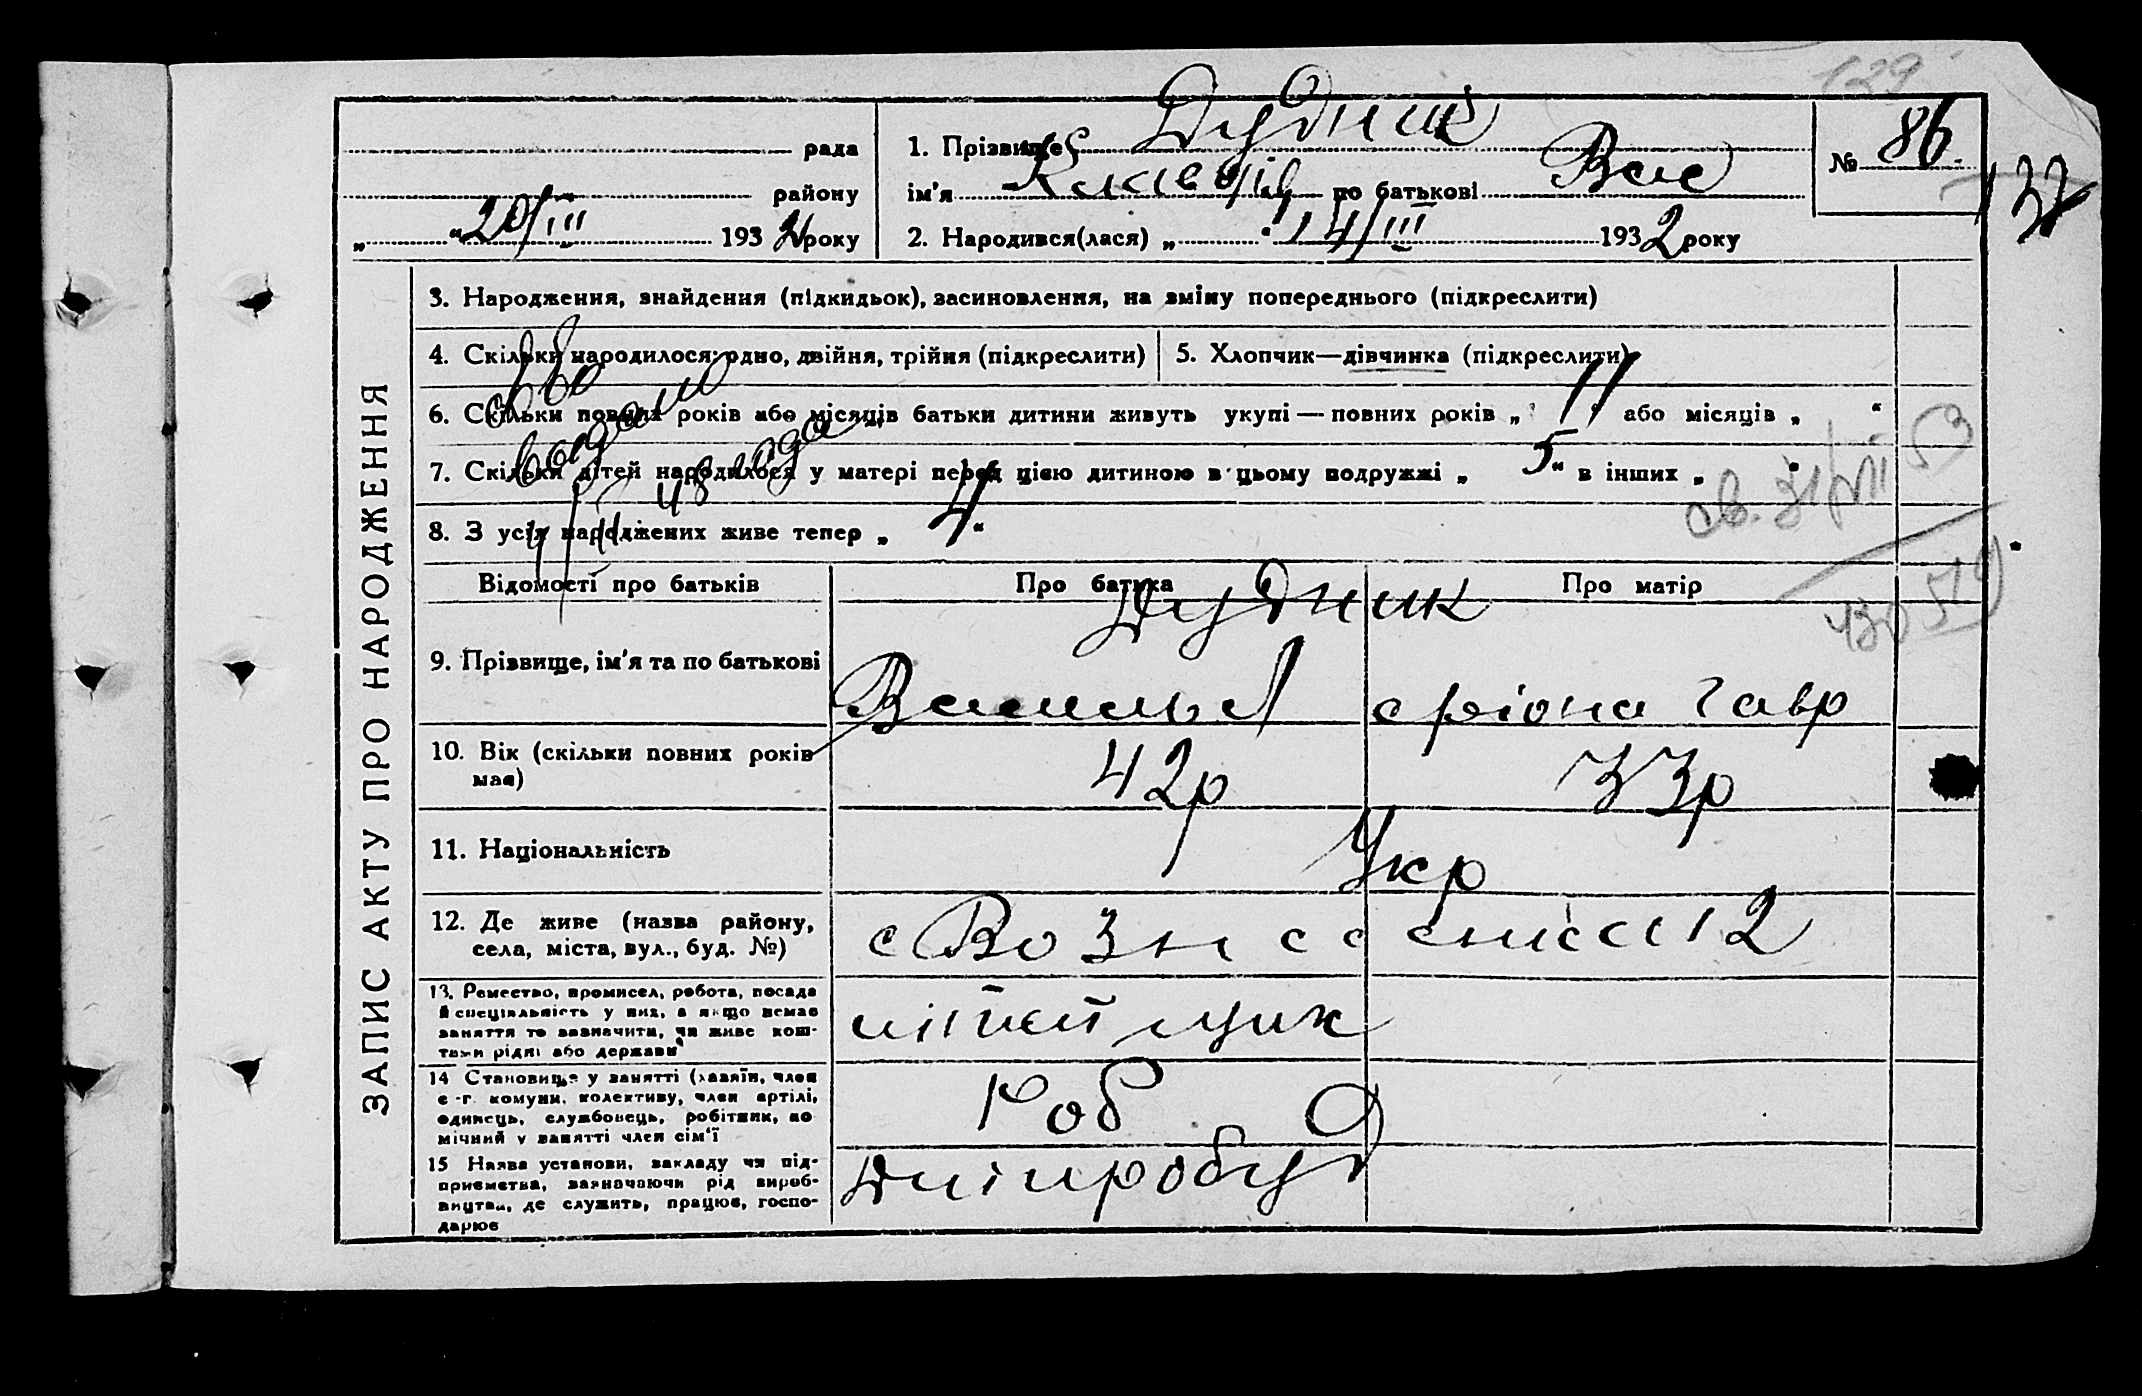 129
рада
1. Прізвище Дудник
№ 86.
району
ім'я Клавдія по батькові Вас
132
„ “ 20/III 1932 року
2. Народився(лася) „ “ 14/III 1932 року
ЗАПИС АКТУ ПРО НАРОДЖЕННЯ
3. Народження, знайдення (підкидьок), засиновлення, на зміну попереднього (підкреслити)
4. Скільки народилося: одно, двійня, трійня (підкреслити)
5. Хлопчик—дівчинка (підкреслити)
6. Скільки повних років або місяців батьки дитини живуть укупі — повних років „ 11 “ або місяців „ “
7. Скільки дітей народилося у матері перед цією дитиною в цьому подружжі „ 5 “ в інших „ “
8. З усіх народжених живе тепер „ 4 “
Відомості про батьків
Про батька
Про матір
9. Прізвище, ім'я та по батькові
Дудник
Василь
Гавр
10. Вік (скільки повних років має)
42р
33р
11. Національність
Укр
12. Де живе (назва району, села, міста, вул., буд. №)
с
13. Ремество, промисел, робота, посада й спеціяльність у них, а якщо немає заняття то зазначити, чи живе коштами рідні або держави
14 Становище у занятті (хазяїн, член с.-г. комуни, колективу, член артілі, одинець, службовець, робітник, помічний у занятті член сім'ї
Роб
15 Назва установи, закладу чи підприємства, зазначаючи рід виробництва, де служить, працює, господарює
Дніпробуд